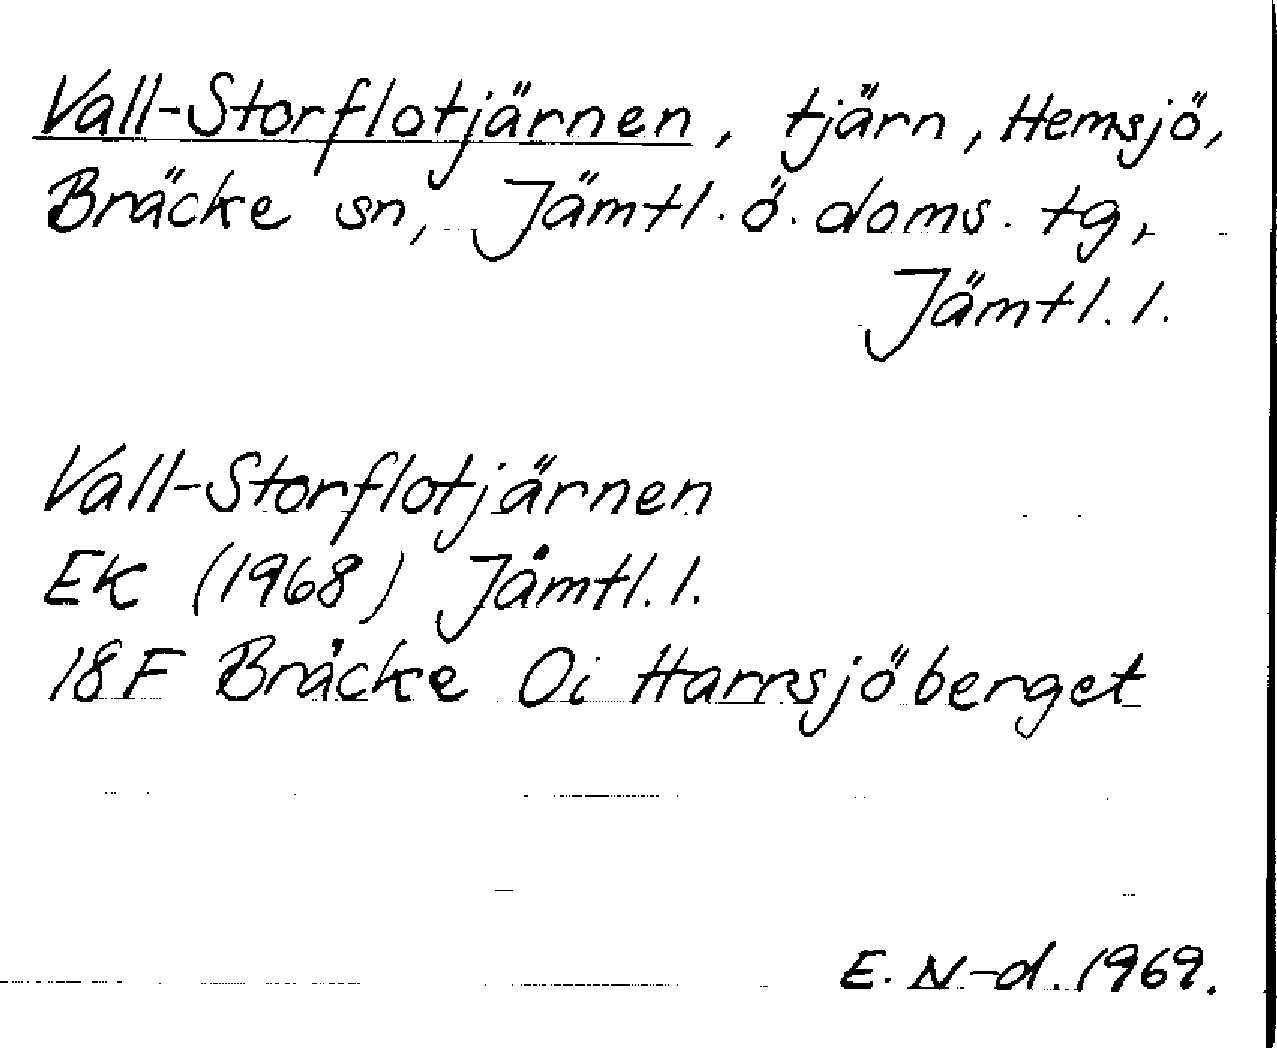 Vall-Storflotjärnen, tjärn, Hemsjö,
Bräcke sn, Jämtl. ö. doms. tg,
Jämtl. l.
Vall-Storflotjärnen
EK (1968) Jämtl. l.
18F Bräcke 0i Harrsjöberget
E. N-d. 1969.